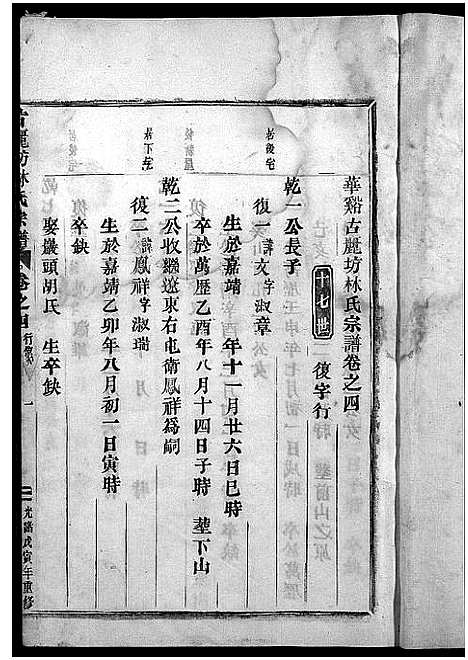 華谿古麗坊林氏宗譜卷之四
十七世
復字行
居後宅
乾一公長子
復一諱文字淑章
生於嘉靖 年十一月廿六日巳時
卒於萬歷乙酉年八月十四日子時 塟下山
乾二公收繼遼東右屯衛鳳祥爲嗣
復二諱鳳祥字淑瑞
生於嘉靖乙卯年八月初一日寅時
卒缺
娶巖頭胡氏 生卒缺
古麗坊林氏宗譜 卷之四 行 一 光緒戊寅年重修